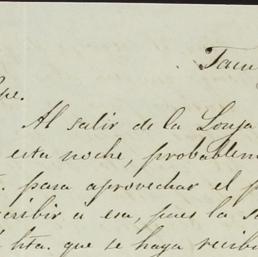 Tam
pe.
Al salir de la Lonja
esta noche, probablem
para aprovechar el p
cribir a esa, pues la s
hta. que se haya recib